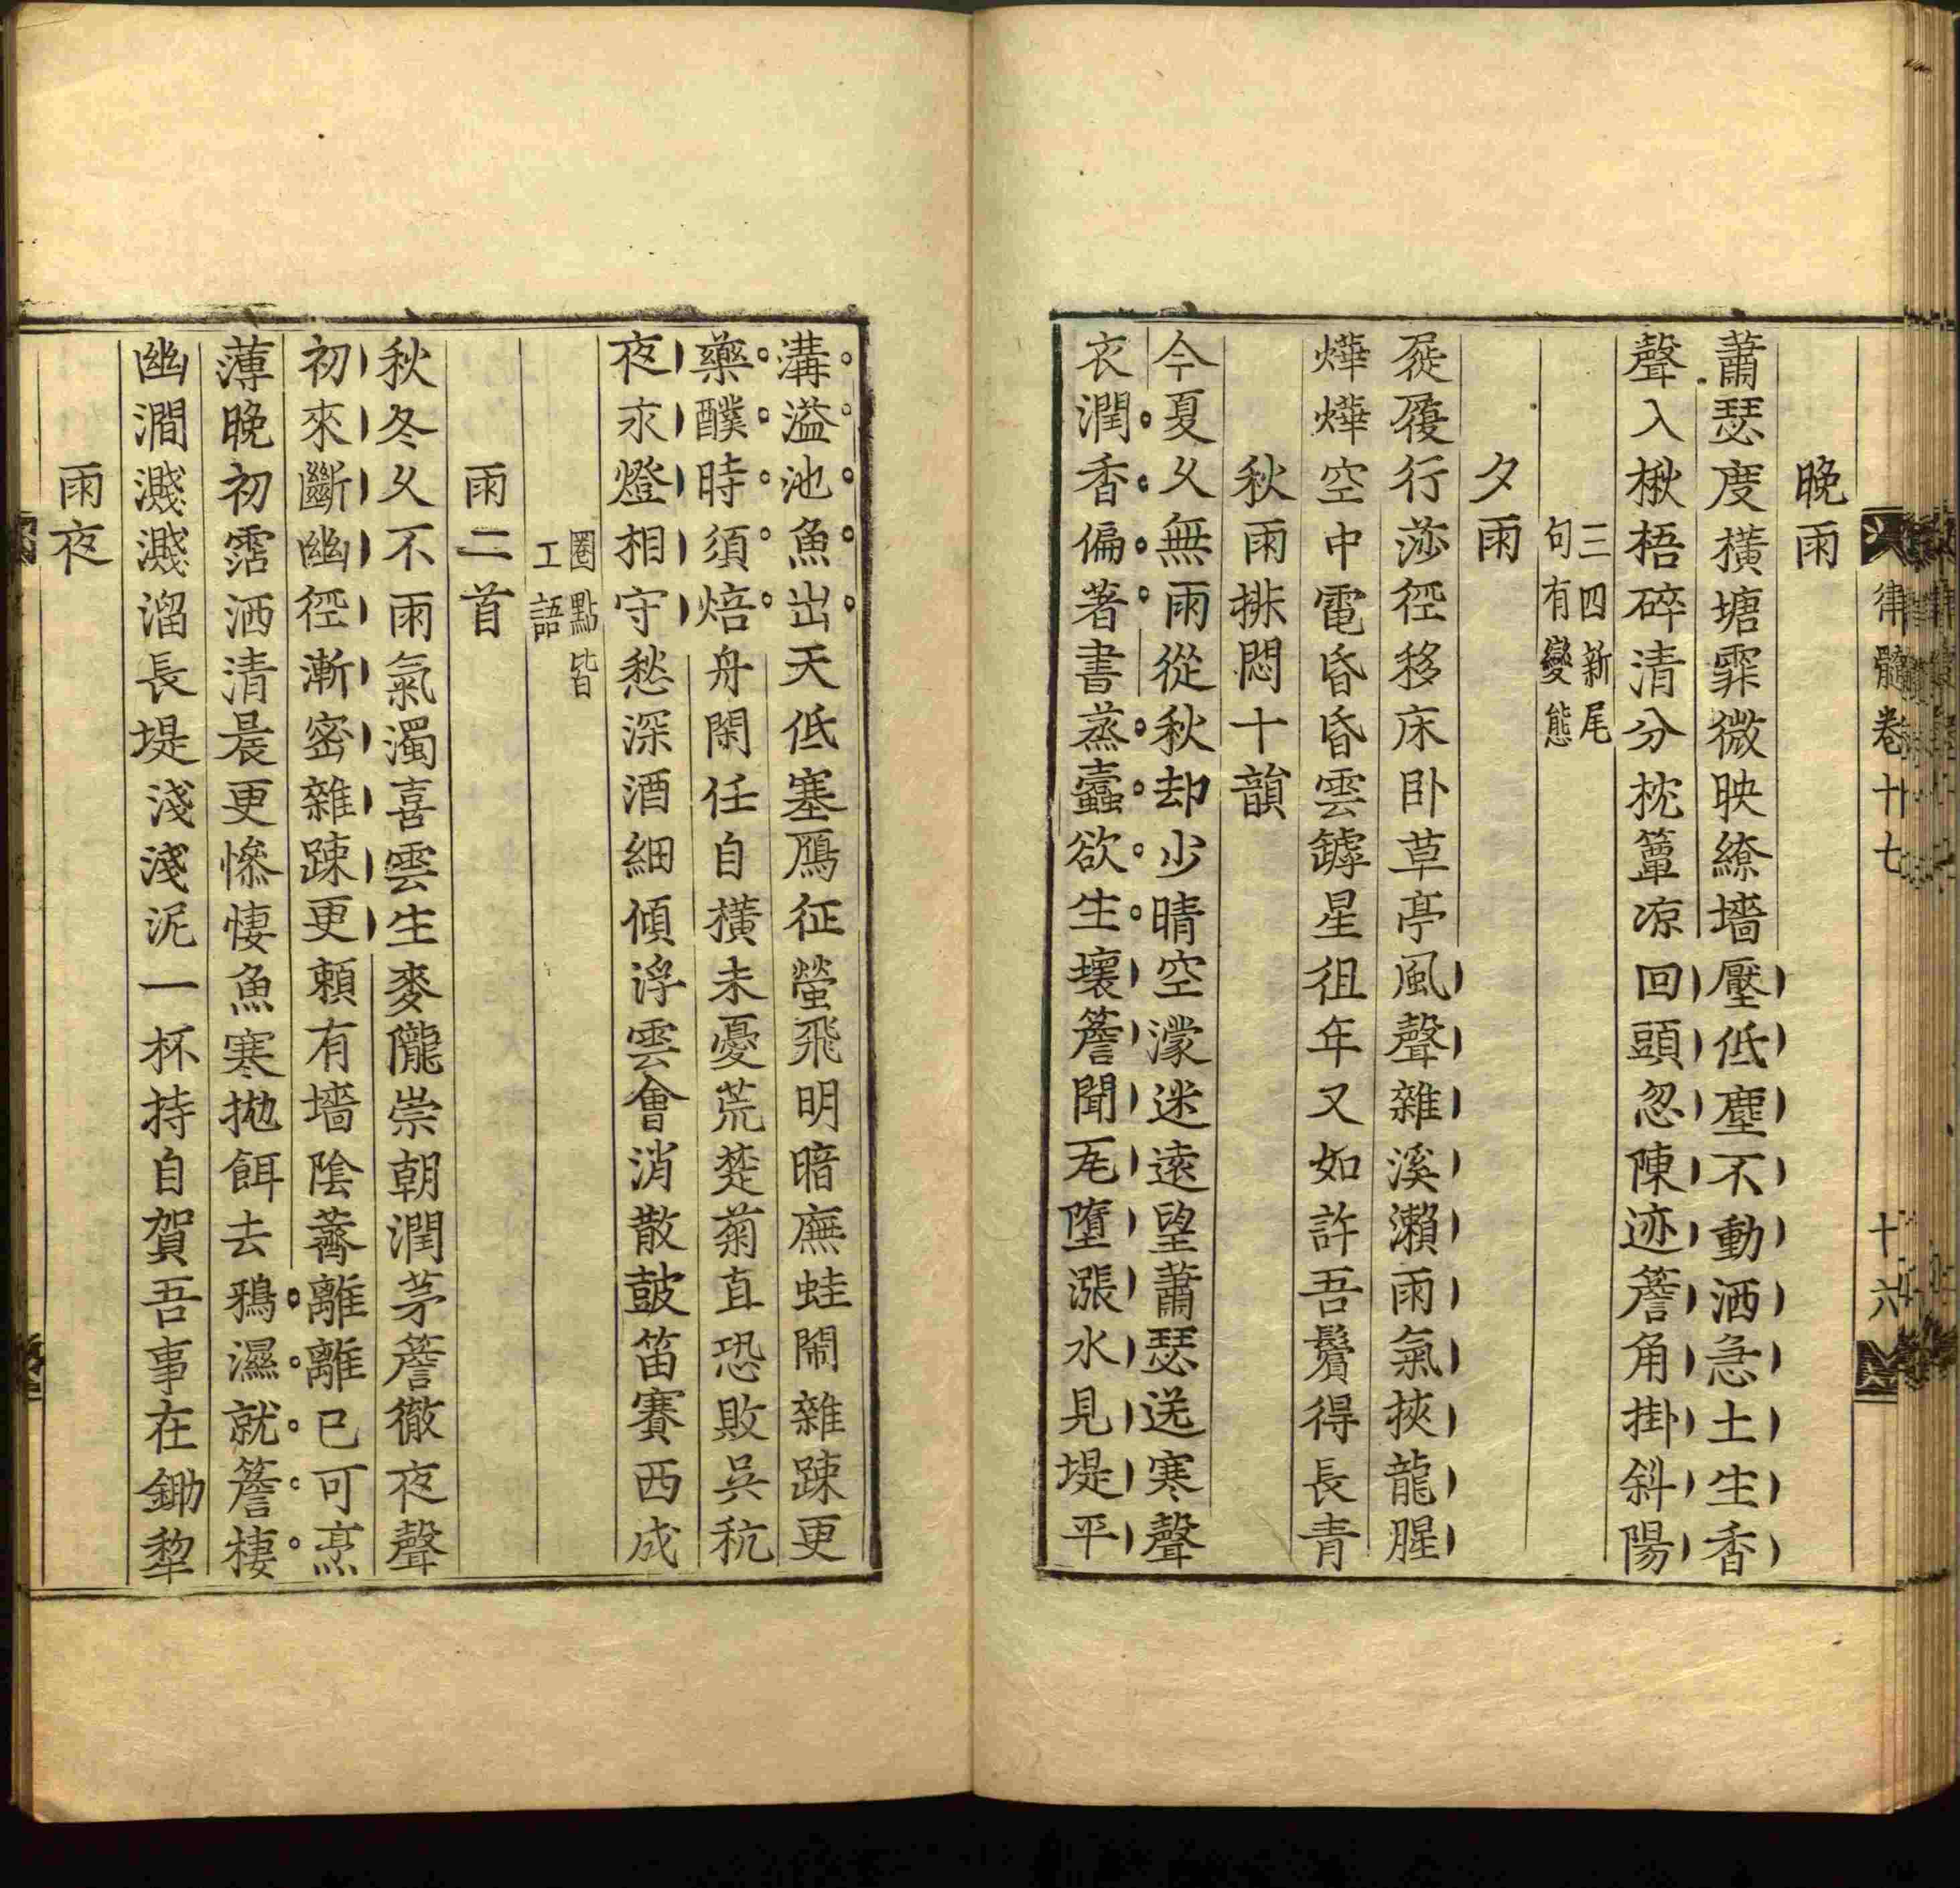 律髓卷十七
十六
晚雨
蕭瑟度橫塘霏微映繚墻壓低塵不動洒急土生香
聲入楸梧碎清分枕簟凉回頭忽陳迹簷角掛斜陽
三四新尾
句有變態
夕雨
屣履行莎徑移床卧草亭風聲雜溪瀨雨氣挾龍腥
燁燁空中電昏昏雲罅星徂年又如許吾鬢得長青
秋雨排悶十韻
今夏久無雨從秋却少晴空濛迷遠望蕭瑟送寒聲
衣潤香偏著書蒸蠹欲生壞簷聞瓦墮漲水見堤平
溝溢池魚出天低塞鴈征螢飛明暗廡蛙鬧雜踈更
藥醭時須焙舟閑任自橫未憂荒楚菊直恐敗吳秔
夜永燈相守愁深酒細傾浮雲會消散鼓笛賽西成
圈點皆
工語
雨二首
秋冬久不雨氣濁喜雲生麥隴崇朝潤茅簷徹夜聲
初來斷幽徑漸密雜踈更賴有墻陰薺離離已可烹
薄晚初霑洒清晨更慘悽魚寒抛餌去鴉濕就簷棲
幽澗濺濺溜長堤淺淺泥一杯持自賀吾事在鋤犂
雨夜